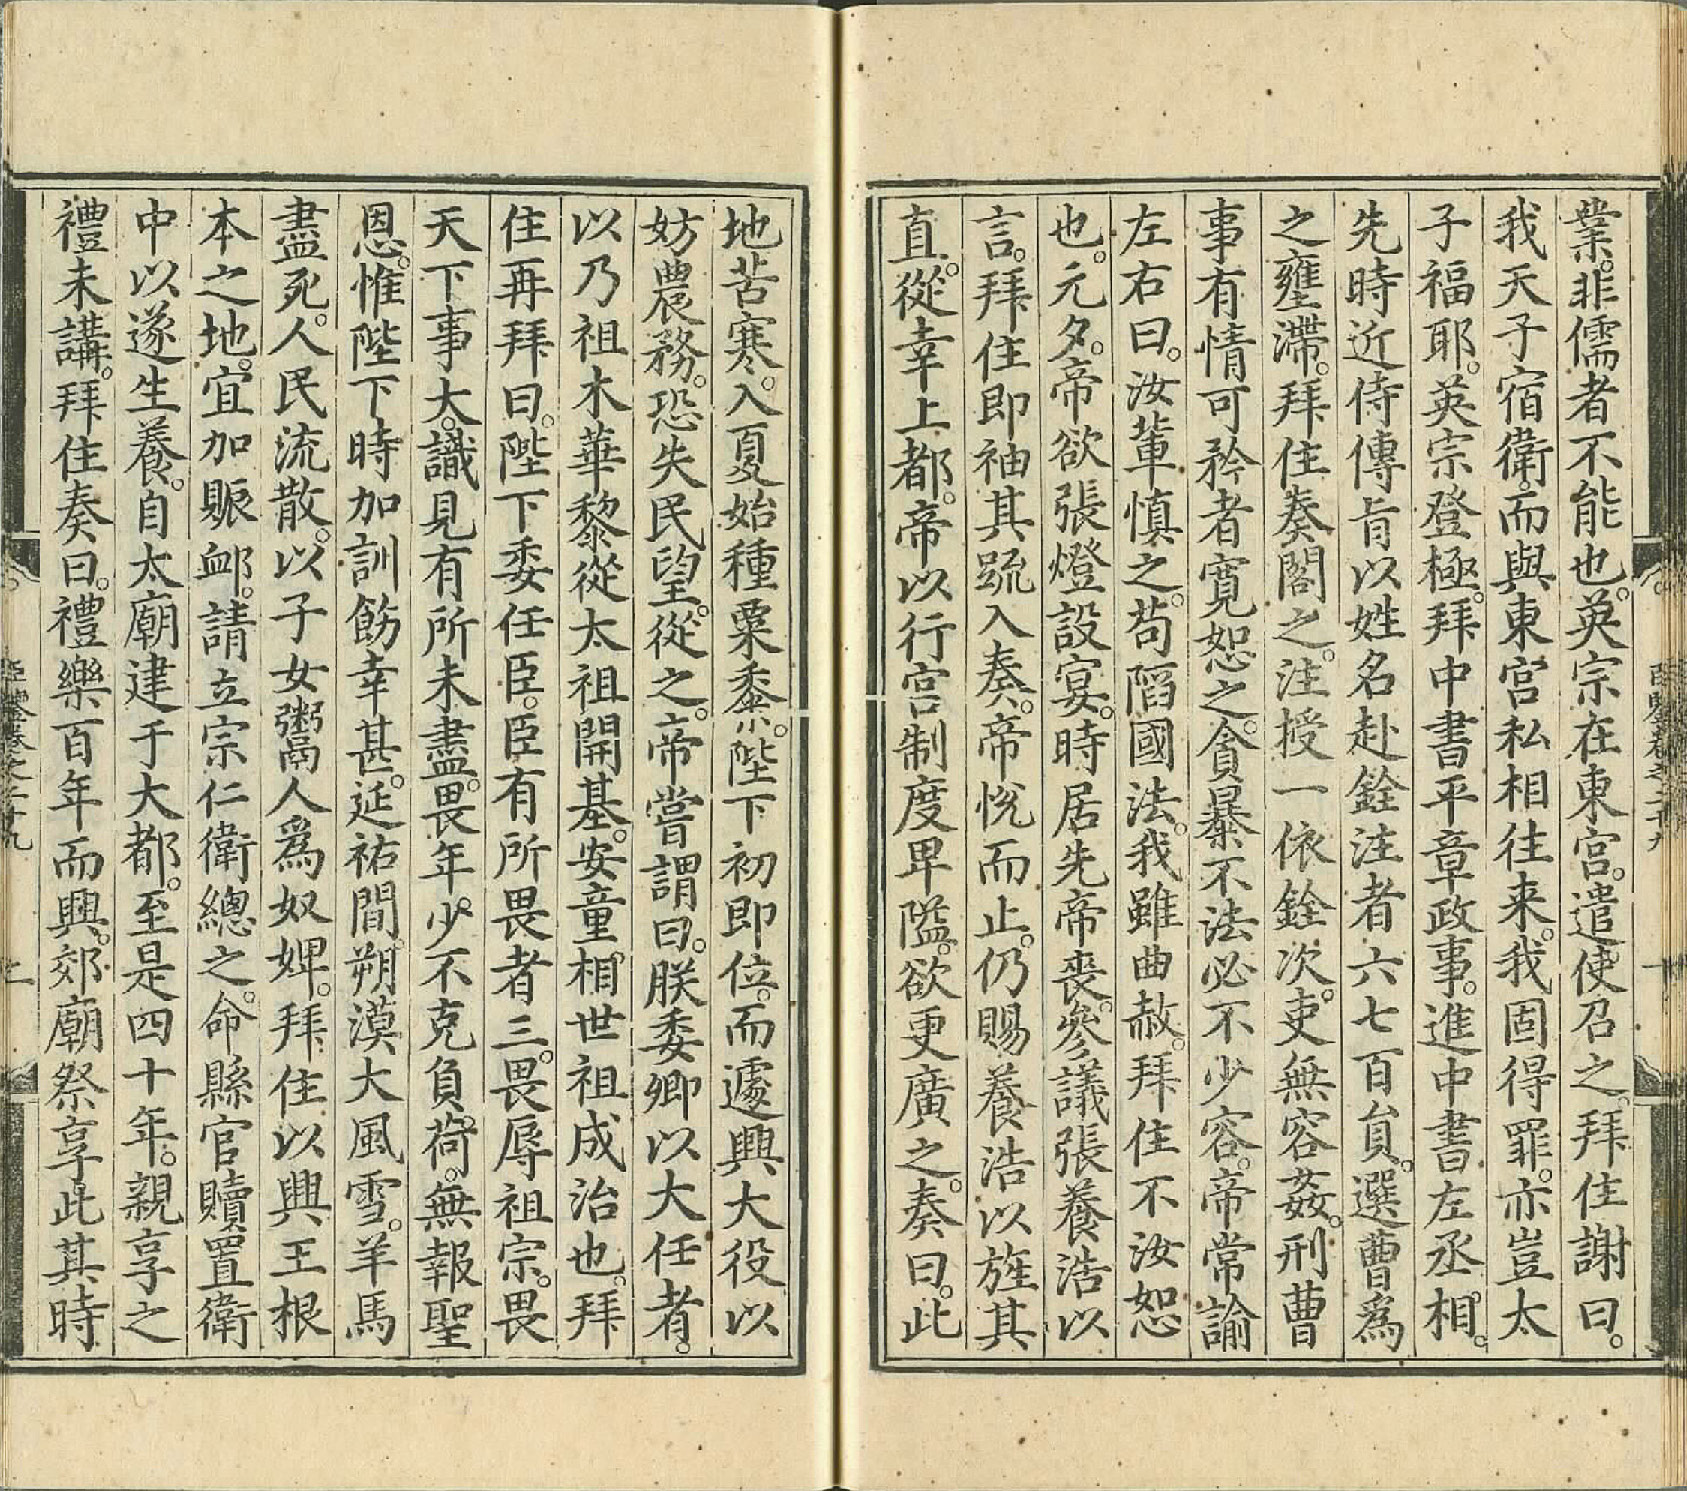 業。非儒者不能也。英宗在東宮。遣使召之。拜住謝曰。
我天子宿衛。而與東宮私相往来。我固得罪。亦豈太
子福耶。英宗登極。拜中書平章政事。進中書左丞相。
先時近侍傳旨以姓名赴銓注者六七百員。選曹爲
之壅滯。拜住奏閣之。注授一依銓次。吏無容姦。刑曹
事有情可矜者寬恕之。貪暴不法必不少容。帝常諭
左右曰。汝輩慎之。苟陷國法。我雖曲赦。拜住不汝恕
也。元夕。帝欲張燈設宴。時居先帝喪。參議張養浩以
言。拜住即袖其疏入奏。帝悅而止。仍賜養浩以旌其
直。從幸上都。帝以行宮制度卑隘。欲更廣之。奏曰。此
地苦寒。入夏始種粟黍。陛下初即位。而遽興大役以
妨農務。恐失民望。從之。帝嘗謂曰。朕委卿以大任者。
以乃祖木華黎從太祖開基。安童相世祖成治也。拜
住再拜曰。陛下委任臣。臣有所畏者三。畏辱祖宗。畏
天下事大。識見有所未盡。畏年少不克負荷。無報聖
恩。惟陛下時加訓飭幸甚。延祐間。朔漠大風雪。羊馬
盡死。人民流散。以子女鬻人爲奴婢。拜住以興王根
本之地。宜加賑卹。請立宗仁衛總之。命縣官贖置衛
中以遂生養。自太廟建于大都。至是四十年。親享之
禮未講。拜住奏曰。禮樂百年而興。郊廟祭享此其時